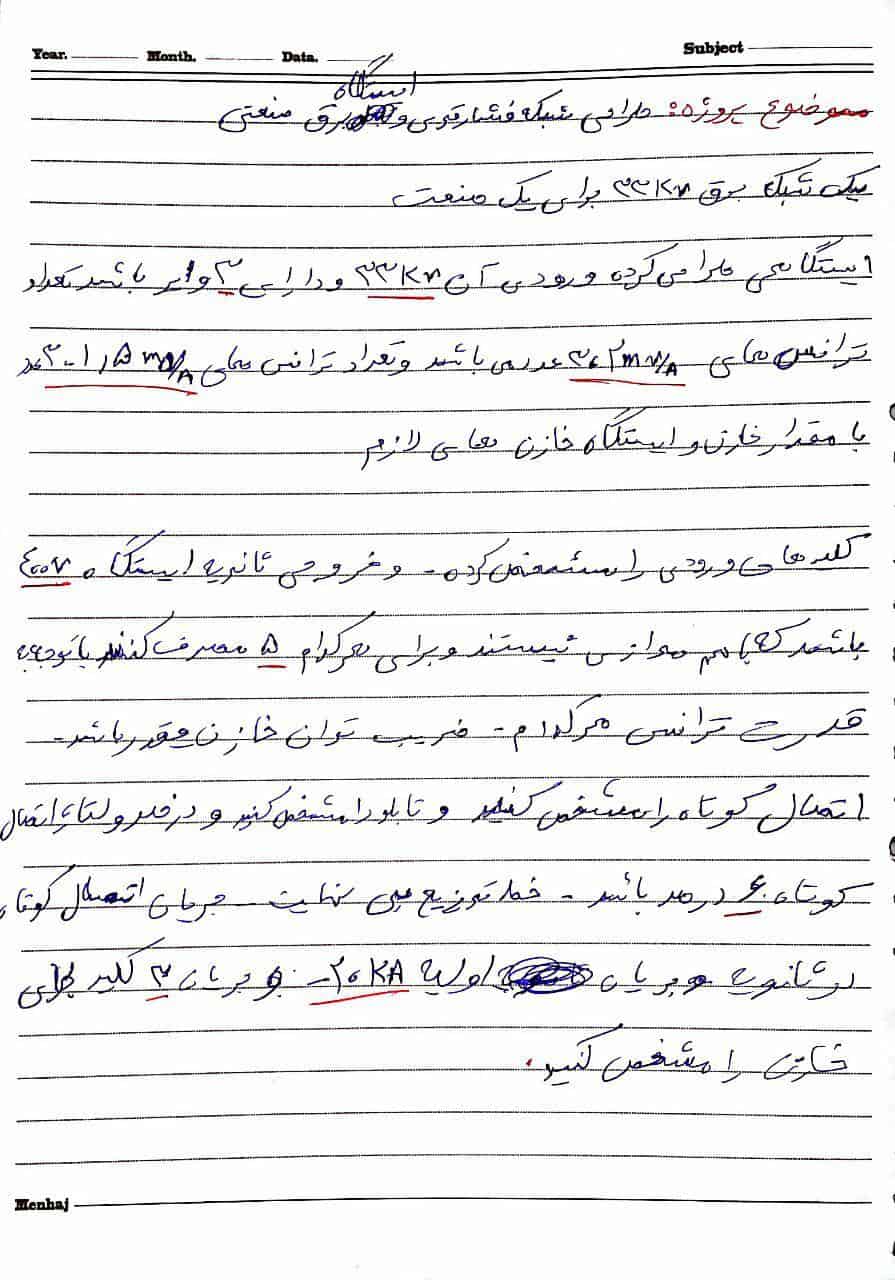 Year. Month. Data. Subject
ایستگاه
موضوع پروژه: طراحی شبکه فشار قوی و برق صنعتی
یک شبکه برق ۳۳KV برای یک صنعت
ایستگاهی طراحی کرده ورودی آن ۳۳KV و دارای ۳ وایر باشد تعداد
ترانس های ۲ MV/A عدد می باشد و تعداد ترانس های ۱,۵ MV/A - ۳ عدد
با مقدار خازن و ایستگاه خازن های لازم
کلید های ورودی را مشخص کرده - و خروجی ثانویه ایستگاه ۴۰۰V
باشد که با هم موازی نیستند و برای هر کدام ۵ مصرف کننده با توجه به
قدرت ترانس هر کدام - ضریب توان خازن چقدر باشد -
اتصال کوتاه را مشخص کنید و تابلو را مشخص کنید و درصد ولتاژ اتصال
کوتاه ۶ درصد باشد - خط توزیع بی نهایت - جریان اتصال کوتاه
در ثانویه جریان اولیه ۲۰KA - جریان ۳ کلید برای
خازن را مشخص کنید.
Menhaj